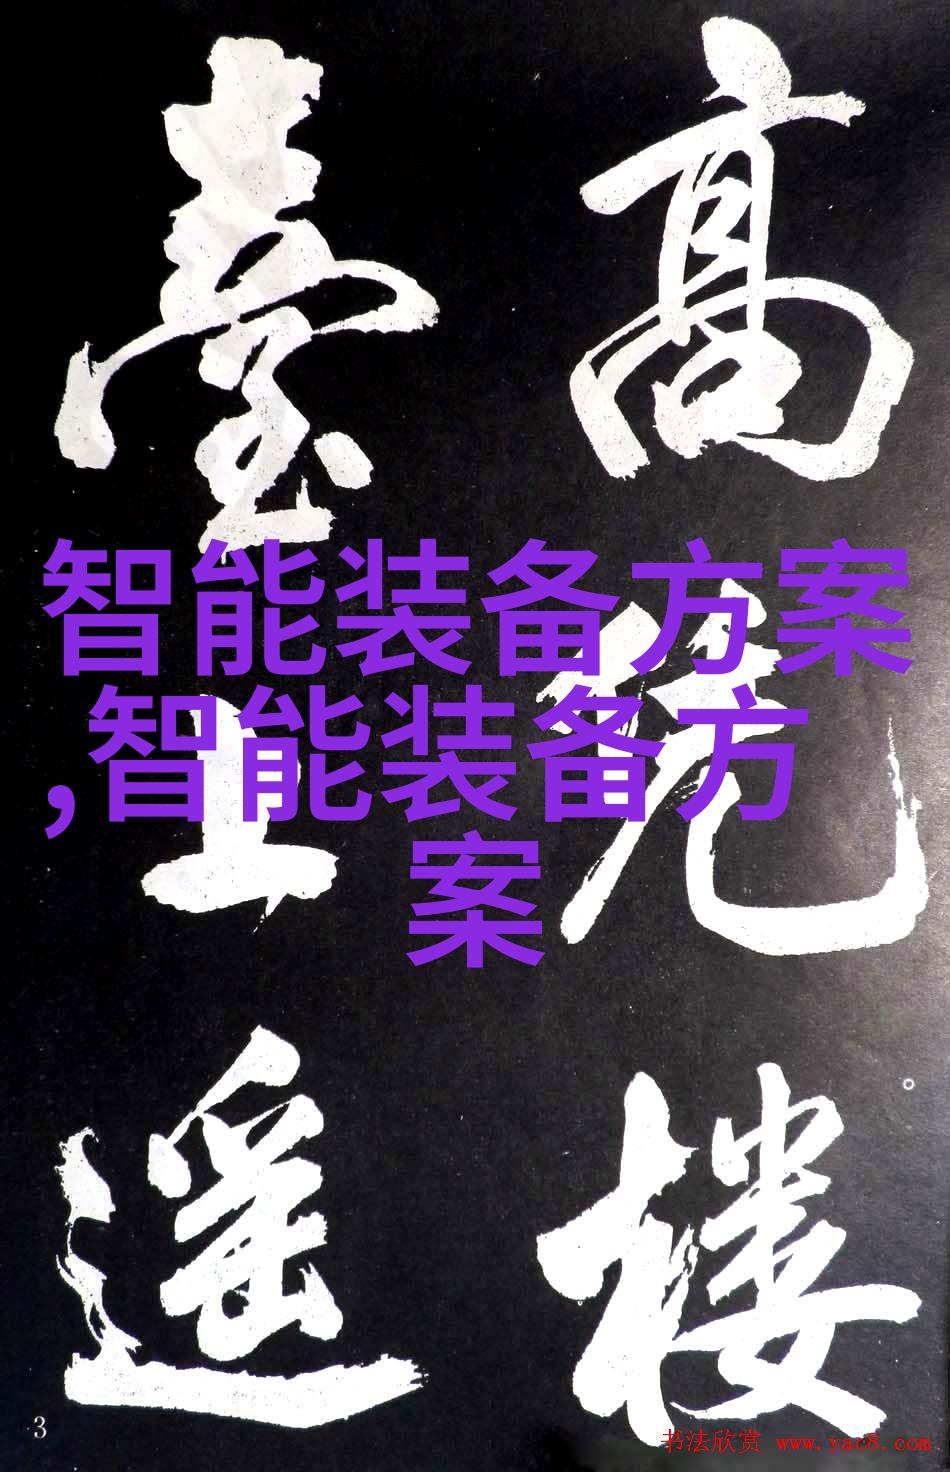 高楼
臺上遥
智能装备方案
,智能装备方
案
3
书法欣赏 www.yac8.com